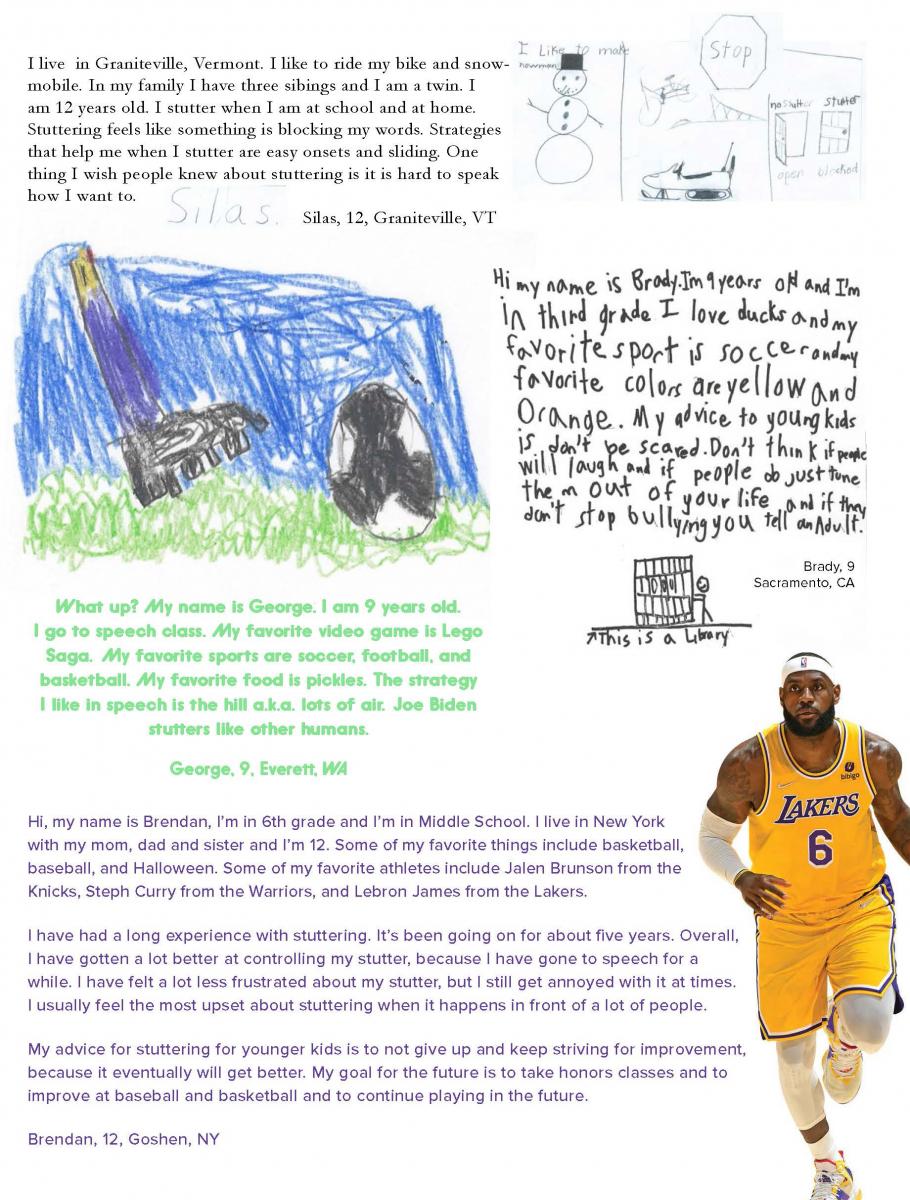 I live in Graniteville, Vermont. I like to ride my bike and snow-
mobile. In my family I have three sibings and I am a twin. I
am 12 years old. I stutter when I am at school and at home.
Stuttering feels like something is blocking my words. Strategies
that help me when I stutter are easy onsets and sliding. One
thing I wish people knew about stuttering is it is hard to speak
how I want to.
Silas.
Silas, 12, Graniteville, VT
I Like to make
nowman
Stop
no stutter
stutter
open
blocked
Hi my name is Brady. I'm 9 years old and I'm
in third grade I love ducks and my
favorite sport is soccer and my
favorite colors are yellow and
Orange. My advice to young kids
is don't be scared. Don't think if people
will laugh and if people do just tune
them out of your life and if they
don't stop bullying you tell an Adult.
Brady, 9
Sacramento, CA
This is a Library
What up? My name is George. I am 9 years old.
I go to speech class. My favorite video game is Lego
Saga. My favorite sports are soccer, football, and
basketball. My favorite food is pickles. The strategy
I like in speech is the hill a.k.a. lots of air. Joe Biden
stutters like other humans.
George, 9, Everett, WA
bibigo
LAKERS
6
Hi, my name is Brendan, I'm in 6th grade and I'm in Middle School. I live in New York
with my mom, dad and sister and I'm 12. Some of my favorite things include basketball,
baseball, and Halloween. Some of my favorite athletes include Jalen Brunson from the
Knicks, Steph Curry from the Warriors, and Lebron James from the Lakers.
I have had a long experience with stuttering. It's been going on for about five years. Overall,
I have gotten a lot better at controlling my stutter, because I have gone to speech for a
while. I have felt a lot less frustrated about my stutter, but I still get annoyed with it at times.
I usually feel the most upset about stuttering when it happens in front of a lot of people.
My advice for stuttering for younger kids is to not give up and keep striving for improvement,
because it eventually will get better. My goal for the future is to take honors classes and to
improve at baseball and basketball and to continue playing in the future.
Brendan, 12, Goshen, NY